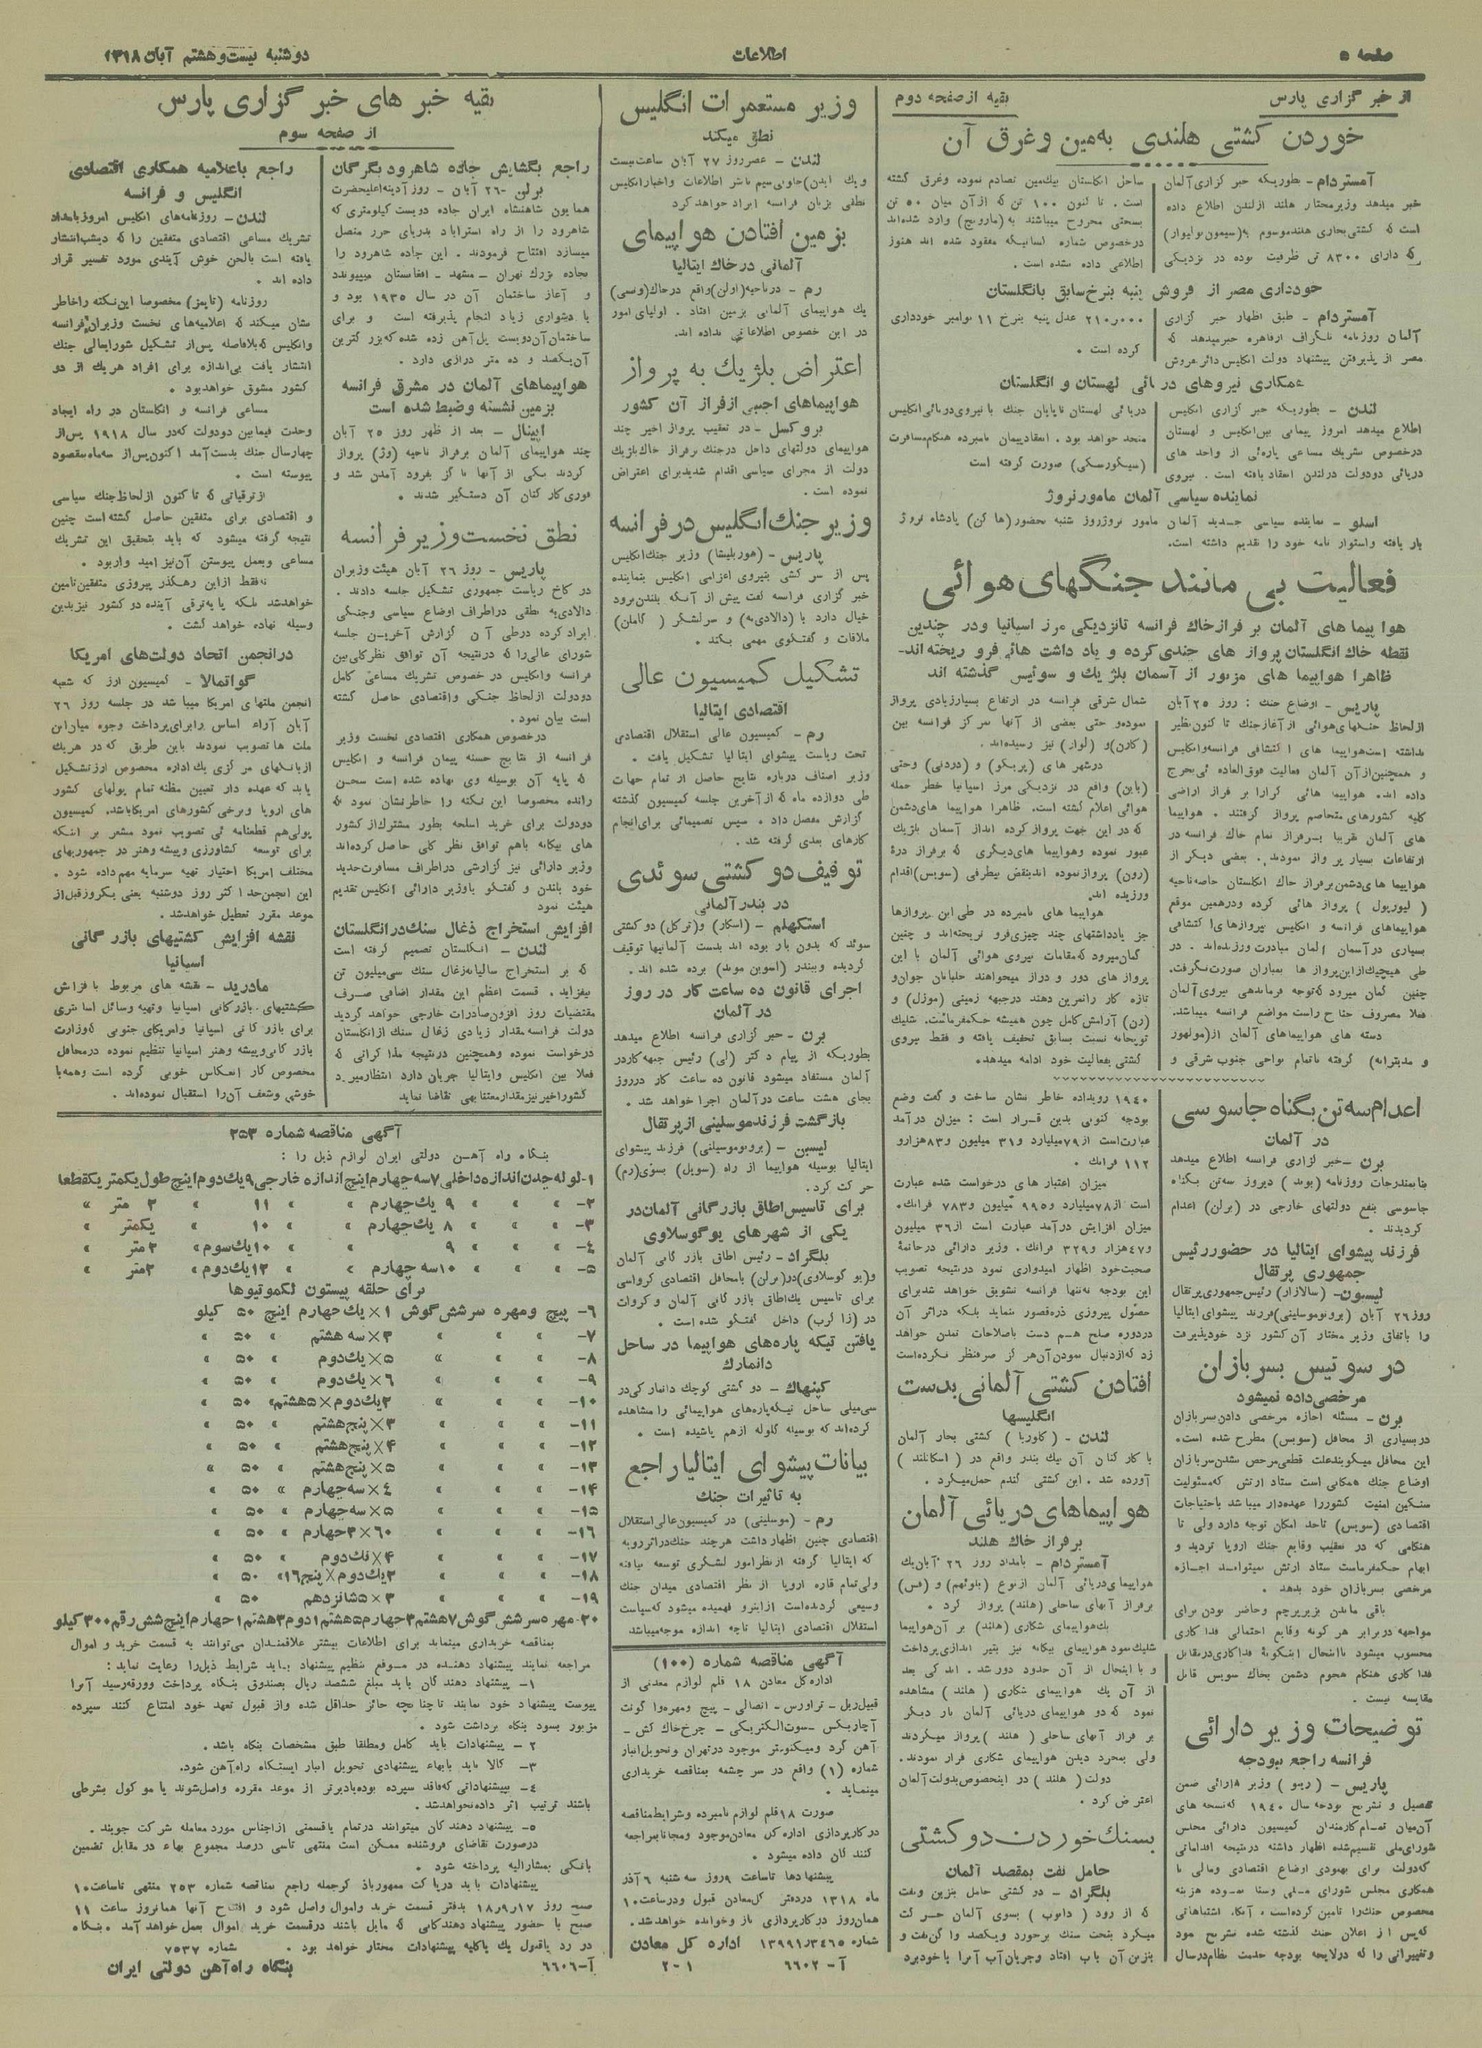 صفحه ۵
اطلاعات
دوشنبه بیست و هشتم آبان ۱۳۱۸
از خبر گزاری پارس
بقیه از صفحه دوم
خوردن کشتی هلندی به مین و غرق آن
آمستردام - بطوریکه خبر گزاری آلمان
خبر میدهد وزیر مختار هلند از لندن اطلاع داده
است که کشتی بخاری هلند موسوم به(سیمون بولیوار)
که دارای ۸۳۰۰ تن ظرفیت بوده در نزدیکی
ساحل انگلستان بیک مین تصادم نموده و غرق گشته
است . تا کنون ۱۰۰ تن که از آن میان ۵۰ تن
بسختی مجروح میباشند به (هارویچ) وارد شده اند
درخصوص شماره کسانیکه مفقود شده اند هنوز
اطلاعی داده نشده است .
خودداری مصر از فروش پنبه بنرخ سابق بانگلستان
آمستردام - طبق اظهار خبر گزاری
آلمان روزنامه تلگراف از قاهره خبر میدهد که
مصر از پذیرفتن پیشنهاد دولت انگلیس دائر بفروش
۲۱۰٫۰۰۰ عدل پنبه بنرخ ۱۱ نوامبر خودداری
کرده است .
همکاری نیروهای دریائی لهستان و انگلستان
لندن - بطوریکه خبر گزاری انگلیس
اطلاع میدهد امروز پیمانی بین انگلیس و لهستان
درخصوص تشریک مساعی پاره‌ئی از واحد های
دریائی دو دولت در لندن انعقاد یافته است . نیروی
دریائی لهستان تا پایان جنک با نیروی دریائی انگلیس
متحد خواهد بود . انعقاد پیمان نامبرده هنگام مسافرت
(سیکورسکی) صورت گرفته است
نماینده سیاسی آلمان مامور نروژ
اسلو - نماینده سیاسی جدید آلمان مامور نروژ روز شنبه بحضور (هاکن) پادشاه نروژ
بار یافته و استوار نامه خود را تقدیم داشته است.
فعالیت بی مانند جنگهای هوائی
هواپیما های آلمان بر فراز خاک فرانسه تا نزدیکی مرز اسپانیا و در چندین
نقطه خاک انگلستان پرواز های چندی کرده و یاد داشت هائی فرو ریخته اند-
ظاهرا هواپیما های مزبور از آسمان بلژیک و سوئیس گذشته اند
پاریس - اوضاع جنک : روز ۲۵ آبان
از لحاظ جنگهای هوائی از آغاز جنک تا کنون نظیر
نداشته است هواپیما های اکتشافی فرانسه و انگلیس
و همچنین از آن آلمان فعالیت فوق العاده ئی بخرج
داده اند. هواپیما هائی کرارا بر فراز اراضی
کلیه کشورهای متخاصم پرواز گرفتند . هواپیما
های آلمان تقریبا بر فراز تمام خاک فرانسه در
ارتفاعات بسیار پرواز نمودند . بعضی دیگر از
هواپیما های دشمن بر فراز خاک انگلستان خاصه ناحیه
( لیورپول ) پرواز هائی کرده و در همین موقع
هواپیماهای فرانسه و انگلیس پروازهای اکتشافی
بسیاری در آسمان آلمان مبادرت ورزیده اند . در
طی هیچیک از این پرواز ها بمباران صورت نگرفت.
چنین گمان میرود که توجه فرماندهی نیروی آلمان
فعلا مصروف جناح راست مواضع فرانسه میباشد.
دسته های هواپیماهای آلمان از (مولهوز
و مدیترانه) گرفته تا تمام نواحی جنوب شرقی و
شمال شرقی فرانسه در ارتفاع بسیار زیادی پرواز
نموده و حتی بعضی از آنها مرکز فرانسه بین
(کارن) و (لوار) نیز رسیده اند .
در شهر های (پریگو) و (دردنی) وحتی
(باین) واقع در نزدیکی مرز اسپانیا خطر حمله
هوائی اعلام گشته است. ظاهرا هواپیما های دشمن
که در این جهت پرواز کرده اند از آسمان بلژیک
عبور نموده و هواپیما های دیگری که بر فراز درۀ
(رون) پرواز نموده اند بنقض بیطرفی (سویس) اقدام
ورزیده اند.
هواپیما های نامبرده در طی این پروازها
جز یادداشتهای چند چیزی فرو نریخته اند و چنین
گمان میرود که مقامات نیروی هوائی آلمان با این
پرواز های دور و دراز میخواهند خلبانان جوان و
تازه کار را تمرین دهند در جبهه زمینی (موزل) و
(رن) آرامش کامل چون همیشه حکمفرماست. شلیک
توپخانه نسبت بسابق تخفیف یافته و فقط نیروی
گشتی بفعالیت خود ادامه میدهد.
اعدام سه تن بگناه جاسوسی
در آلمان
برن - خبر گزاری فرانسه اطلاع میدهد
بنا بمندرجات روزنامه (بوند) دیروز سه تن بگناه
جاسوسی بنفع دولتهای خارجی در (برلن) اعدام
گردیدند .
فرزند پیشوای ایتالیا در حضور رئیس
جمهوری پرتقال
لیسبون- (سالازار) رئیس جمهوری پرتقال
روز ۲۶ آبان (برونو موسلینی) فرزند پیشوای ایتالیا
را باتفاق وزیر مختار آن کشور نزد خود پذیرفت
در سوئیس بسربازان
مرخصی داده نمیشود
برن - مسئله اجازه مرخصی دادن سربازان
در بسیاری از محافل (سویس) مطرح شده است.
این محافل میگویند علت قطعی مرخص نشدن سربازان
اوضاع جنک همگانی است ستاد ارتش که مسئولیت
سنگین امنیت کشور را عهده دار میباشد باحتیاجات
اقتصادی (سویس) تا حد امکان توجه دارد ولی تا
هنگامی که در تعقیب وقایع جنک اروپا تردید و
ابهام حکمفرماست ستاد ارتش نمیتواند اجازه
مرخصی بسربازان خود بدهد .
باقی ماندن بزیر پرچم و حاضر بودن برای
مواجهه در برابر هر گونه وقایع احتمالی فداکاری
محسوب میشود با اینحال اینگونه فداکاری در مقابل
فداکاری هنگام هجوم دشمن بخاک سویس قابل
مقایسه نیست .
توضیحات وزیر دارائی
فرانسه راجع ببودجه
پاریس - ( رینو ) وزیر دارائی ضمن
تفصیل و تشریح بودجه سال ۱۹۴۰ که نسخه های
آن میان تمام کارمندان کمیسیون دارائی مجلس
شورای ملی تقسیم شده اظهار داشته در نتیجه اقداماتی
که دولت برای بهبودی اوضاع اقتصادی و مالی با
همکاری مجلس شورای ملی و سنا نموده هزینه
مخصوص جنک را تامین کرده است . آنگاه اشتباهاتی
که پس از اعلان جنک گذشته شده تشریح نمود
و تغییراتی را که در لایحه بودجه خدمت نظام در سال
۱۹۴۰ رویداده خاطر نشان ساخت و گفت وضع
بودجه کنونی بدین قرار است : میزان درآمد
عبارت است از ۷۹ میلیارد و ۳۱ میلیون و ۸۳ هزار و
۱۱۲ فرانک .
میزان اعتبار های درخواست شده عبارت
است از ۷۸ میلیارد و ۹۹۵ میلیون و ۷۸۳ فرانک.
میزان افزایش درآمد عبارت است از ۳۶ میلیون
و ۴۷ هزار و ۳۲۹ فرانک . وزیر دارائی در خاتمۀ
صحبت خود اظهار امیدواری نمود در نتیجه تصویب
این بودجه نه تنها فرانسه تشویق خواهد شد برای
حصول پیروزی ذره قصور ننماید بلکه در اثر آن
در دوره صلح هم دست باصلاحات تمدن خواهد
زد که از دنبال نمودن آن هرگز صرفنظر نکرده است
افتادن کشتی آلمانی بدست
انگلیسها
لندن - ( کاوریا ) کشتی بخار آلمان
با کارکنان آن بیک بندر واقع در ( اسکاتلند )
آورده شد . این کشتی گندم حمل میکرد .
هواپیماهای دریائی آلمان
بر فراز خاک هلند
آمستردام - بامداد روز ۲۶ آبان یک
هواپیمای دریائی آلمان از نوع (بلوئهم) و (فس)
بر فراز آبهای ساحلی (هلند) پرواز کرد .
یک هواپیمای شکاری (هلند) بر آن هواپیما
شلیک نمود هواپیمای بیگانه نیز بتیر اندازی پرداخت
و با اینحال از آن حدود دور شد . اندکی بعد
از آن یک هواپیمای شکاری ( هلند ) مشاهده
نمود که دو هواپیمای دریائی آلمان بار دیگر
بر فراز آبهای ساحلی ( هلند ) پرواز میکردند
ولی بمجرد دیدن هواپیمای شکاری فرار نمودند.
دولت( هلند ) در اینخصوص بدولت آلمان
اعتراض کرد .
بسنگ خوردن دو کشتی
حامل نفت بمقصد آلمان
بلگراد - دو کشتی حامل بنزین و نفت
که از رود ( دانوب ) بسوی آلمان حرکت
میکرد بتخت سنک برخورد و یکصد واگن نفت و
بنزین آن باب افتاد و جریان آب آنرا با خود برد
وزیر مستعمرات انگلیس
نطق میکند
لندن - عصر روز ۲۷ آبان ساعت بیست
و یک (ایدن) با بی‌سیم ناشر اطلاعات و اخبار انگلیس
نطقی بزبان فرانسه ایراد خواهد کرد
بزمین افتادن هواپیمای
آلمانی در خاک ایتالیا
رم - در ناحیه (اولن) واقع در خاک (ونسی)
یک هواپیمای آلمانی بزمین افتاد . اولیای امور
در این خصوص اطلاعاتی نداده اند.
اعتراض بلژیک به پرواز
هواپیماهای اجنبی از فراز آن کشور
بروکسل - در تعقیب پرواز اخیر چند
هواپیمای دولتهای داخل در جنک بر فراز خاک بلژیک
دولت از مجرای سیاسی اقدام شدید برای اعتراض
نموده است .
وزیر جنک انگلیس در فرانسه
پاریس - (هوربلیشا) وزیر جنک انگلیس
پس از سر کشی بنیروی اعزامی انگلیس بنماینده
خبر گزاری فرانسه گفت پیش از آنکه بلندن برود
خیال دارد با (دالادیه) و سرلشکر ( گاملن)
ملاقات و گفتگوی مهمی بکند .
تشکیل کمیسیون عالی
اقتصادی ایتالیا
رم - کمیسیون عالی استقلال اقتصادی
تحت ریاست پیشوای ایتالیا تشکیل یافت .
وزیر اصناف درباره نتایج حاصل از تمام جهات
طی دوازده ماه که از آخرین جلسه کمیسیون گذشته
گزارش مفصل داد . سپس تصمیماتی برای انجام
کارهای بعدی گرفته شد .
توقیف دو کشتی سوئدی
در بندر آلمانی
استکهلم - (اسکار) و (ترکل) دو کشتی
سوئد که بدون بار بوده اند بدست آلمانیها توقیف
گردیده و ببندر (اسوین موند) برده شده اند .
اجرای قانون ده ساعت کار در روز
در آلمان
برن - خبر گزاری فرانسه اطلاع میدهد
بطوریکه از پیام دکتر (لی) رئیس جبهه کار در
آلمان مستفاد میشود قانون ده ساعت کار در روز
بجای هشت ساعت در آلمان اجرا خواهد شد .
بازگشت فرزند موسلینی از پرتقال
لیسبن - (برونو موسیلنی) فرزند پیشوای
ایتالیا بوسیله هواپیما از راه (سویل) بسوی (رم)
حرکت کرد .
برای تاسیس اطاق بازرگانی آلمان در
یکی از شهرهای یوگوسلاوی
بلگراد - رئیس اطاق بازرگانی آلمان
و (یوگوسلاوی) در (برلن) با محافل اقتصادی کرواسی
برای تاسیس یک اطاق بازرگانی آلمان و کروات
در (زاگرب) داخل گفتگو شده است .
یافتن تیکه پاره‌های هواپیما در ساحل
دانمارک
کپنهاک - دو کشتی کوچک دانمارکی در
سی میلی ساحل تیکه پاره‌های هواپیمائی را مشاهده
کرده اند که بوسیله گلوله از هم پاشیده است .
بیانات پیشوای ایتالیا راجع
به تاثیرات جنک
رم - (موسلینی) در کمیسیون عالی استقلال
اقتصادی چنین اظهار داشت هر چند جنک در اثر رویه
که ایتالیا گرفته از نظر امور لشگری توسعه نیافته
ولی تمام قاره اروپا از نظر اقتصادی میدان جنک
وسیعی گردیده است از اینرو فهمیده میشود که سیاست
استقلال اقتصادی ایتالیا تا چه اندازه موجه میباشد
آگهی مناقصه شماره (۱۰۰)
اداره کل معادن ۱۸ قلم لوازم معدنی از
قبیل ریل - تراورس - اتصالی - پیچ و مهره و گونت
آچاربکس - سوت الکتریکی - چرخ خاک کش -
آهن گرد و میکنوتر موجود در تهران و تحویل انبار
شماره (۱) واقع در سر چشمه بمناقصه خریداری
مینماید .
صورت ۱۸ قلم لوازم نامبرده و شرایط مناقصه
در کار پردازی اداره کل معادن موجود و مجانا بمراجعه
کنندگان داده میشود .
پیشنهادها تا ساعت ۹ روز سه شنبه ۶ آذر
ماه ۱۳۱۸ در دفتر کل معادن قبول و در ساعت ۱۰
همان روز در کار پردازی باز و خوانده خواهد شد.
شماره ۱۳۹۹۱٫۳۴۶۵ اداره کل معادن
آ - ۶۶۰۲ ۲-۱
بقیه خبر های خبر گزاری پارس
از صفحه سوم
راجع بگشایش جاده شاهرود بگرگان
برلن -۲۶ آبان - روز آدینه اعلیحضرت
همایون شاهنشاه ایران جاده دویست کیلومتری که
شاهرود را از راه استراباد بدریای خزر متصل
میسازد افتتاح فرمودند . این جاده شاهرود را
بجاده بزرگ تهران - مشهد - افغانستان میپیوندد
و آغاز ساختمان آن در سال ۱۹۳۵ بود و
با دشواری زیاد انجام پذیرفته است و برای
ساختمان آن دویست پل آهن زده شده که بزرگترین
آن یکصد و ده متر درازی دارد .
هواپیماهای آلمان در مشرق فرانسه
بزمین نشسته و ضبط شده است
اپینال - بعد از ظهر روز ۲۵ آبان
چند هواپیمای آلمان بر فراز ناحیه (وژ) پرواز
کردند یکی از آنها ناگزیر بفرود آمدن شد و
فوری کارکنان آن دستگیر شدند .
نطق نخست وزیر فرانسه
پاریس - روز ۲۶ آبان هیئت وزیران
در کاخ ریاست جمهوری تشکیل جلسه دادند .
دالادیه نطقی در اطراف اوضاع سیاسی و جنگی
ایراد کرده در طی آن گزارش آخرین جلسه
شورای عالی را که در نتیجه آن توافق نظر کلی بین
فرانسه و انگلیس در خصوص تشریک مساعی کامل
دو دولت از لحاظ جنگی و اقتصادی حاصل گشته
است بیان نمود .
در خصوص همکاری اقتصادی نخست وزیر
فرانسه از نتایج حسنه پیمان فرانسه و انگلیس
که پایه آن بوسیله وی نهاده شده است سخن
رانده مخصوصا این نکته را خاطر نشان نمود که
دو دولت برای خرید اسلحه بطور مشترک از کشور
های بیگانه باهم توافق نظر کلی حاصل کرده اند
وزیر دارائی نیز گزارشی در اطراف مسافرت جدید
خود بلندن و گفتگو با وزیر دارائی انگلیس تقدیم
هیئت نمود
افزایش استخراج ذغال سنک در انگلستان
لندن - انگلستان تصمیم گرفته است
که بر استخراج سالیانه زغال سنک سی میلیون تن
بیفزاید . قسمت اعظم این مقدار اضافی صرف
مقتضیات روز افزون صادرات خارجی خواهد گردید
دولت فرانسه مقدار زیادی زغال سنک از انگلستان
درخواست نموده و همچنین در نتیجه مذاکراتی که
فعلا بین انگلیس و ایتالیا جریان دارد انتظار میرود
کشور اخیر نیز مقدار معتنابهی تقاضا نماید
راجع باعلامیه همکاری اقتصادی
انگلیس و فرانسه
لندن - روزنامه های انگلیس امروز بامداد
تشریک مساعی اقتصادی متفقین را که دیشب انتشار
یافته است بالحن خوش آیندی مورد تفسیر قرار
داده اند .
روزنامه (تایمز) مخصوصا این نکته را خاطر
نشان میکند که اعلامیه های نخست وزیران فرانسه
و انگلیس که بلافاصله پس از تشکیل شورایعالی جنک
انتشار یافت بی‌اندازه برای افراد هر یک از دو
کشور مشوق خواهد بود .
مساعی فرانسه و انگلستان در راه ایجاد
وحدت فیمابین دو دولت که در سال ۱۹۱۸ پس از
چهار سال جنک بدست آمد اکنون پس از سه ماه مقصود
پیوسته است .
از ترقیاتی که تا کنون از لحاظ جنک سیاسی
و اقتصادی برای متفقین حاصل گشته است چنین
نتیجه گرفته میشود که باید بتحقیق این تشریک
مساعی و بعمل پیوستن آن نیز امید وار بود .
نه فقط از این رهگذر پیروزی متفقین تامین
خواهد شد بلکه پایه ترقی آینده دو کشور نیز بدین
وسیله نهاده خواهد گشت .
در انجمن اتحاد دولت های امریکا
گواتمالا - کمیسیون ارز که شعبه
انجمن ملتهای امریکا میباشد در جلسه روز ۲۶
آبان آراء اساس را برای پرداخت وجوه میان این
ملت ها تصویب نمودند باین طریق که در هر یک
از بانکهای مرکزی یک اداره مخصوص ارز تشکیل
یابد که عهده دار تعیین مظنه تمام پولهای کشور
های اروپا و برخی کشورهای امریکا باشد. کمیسیون
پولی هم قطعنامه ئی تصویب نمود مشعر بر اینکه
برای توسعه کشاورزی و پیشه و هنر در جمهوریهای
مختلف امریکا اختیار تهیه سرمایه مهم داده شود .
این انجمن حداکثر روز دوشنبه یعنی یکروز قبل از
موعد مقرر تعطیل خواهد شد .
نقشه افزایش کشتیهای بازرگانی
اسپانیا
مادرید - نقشه های مربوط با فزایش
کشتیهای بازرگانی اسپانیا و تهیه وسائل اساسی تری
برای بازرگانی اسپانیا و امریکای جنوبی که وزارت
بازرگانی و پیشه و هنر اسپانیا تنظیم نموده در محافل
مخصوص کار انعکاس خوبی کرده است و همه با
خوشی و شعف آن را استقبال نموده اند .
آگهی مناقصه شماره ۲۵۳
بنگاه راه آهن دولتی ایران لوازم ذیل را :
۱-لوله چدن اندازه داخلی ۷ سه چهارم اینچ اندازه خارجی ۹ یک دوم اینچ طول یکمتر یکقطعه
۲- » » » ۹ یک چهارم » » ۱۱ » ۲ متر »
۳- » » » ۸ یک چهارم » » ۱۰ » یکمتر »
۴- » » » ۹ » » ۱۰ یک سوم » ۲ متر »
۵- » » » ۱۰ سه چهارم » » ۱۲ یک دوم » ۲ متر »
برای حلقه پیستون لکموتیوها
۶- پیچ و مهره سر شش گوش ۱×یک چهارم اینچ ۵۰ کیلو
۷- » » » ۳×سه هشتم » ۵۰ »
۸- » » » ۵×یک دوم » ۵۰ »
۹- » » » ۶×یک دوم » ۵۰ »
۱۰- » » » ۲ یک دوم×۵ هشتم » ۵۰ »
۱۱- » » » ۳×پنج هشتم » ۵۰ »
۱۲- » » » ۴×پنج هشتم » ۵۰ »
۱۳- » » » ۵×پنج هشتم » ۵۰ »
۱۴- » » » ۴×سه چهارم » ۵۰ »
۱۵- » » » ۵×سه چهارم » ۵۰ »
۱۶- » » » ۶۰×۳ چهارم » ۵۰ »
۱۷- » » » ۴×یک دوم » ۵۰ »
۱۸- » » » ۲ یک دوم×پنج ۱۶ » ۵۰ »
۱۹- » » » ۳×۵ شانزدهم ۵۰ »
۲۰- مهره سر شش گوش ۷ هشتم ۳ چهارم ۵ هشتم ۱ دوم ۳ هشتم ۱ چهارم اینچ شش رقم ۳۰۰ کیلو
بمناقصه خریداری مینماید برای اطلاعات بیشتر علاقمندان می‌توانند به قسمت خرید و اموال
مراجعه نمایند پیشنهاد دهنده در موقع تنظیم پیشنهاد باید شرایط ذیل را رعایت نماید :
۱- پیشنهاد دهندگان باید مبلغ ششصد ریال بصندوق بنگاه پرداخت و ورقه رسید آنرا
پیوست پیشنهاد خود نمایند تا چنانچه حائز حداقل شده و از قبول تعهد خود امتناع کنند سپرده
مزبور بسود بنگاه برداشت شود .
۲ - پیشنهادات باید کامل و مطلقا طبق مشخصات بنگاه باشد .
۳- کالا باید بابهاء پیشنهادی تحویل انبار ایستگاه راه آهن شود.
۴- پیشنهاداتی که فاقد سپرده بوده یا دیرتر از موعد مقرره واصل شوند یا موکول بشرطی
باشند ترتیب اثر داده نخواهد شد .
۵- پیشنهاد دهندگان میتوانند در تمام یا قسمتی از اجناس مورد معامله شرکت جویند .
در صورت تقاضای فروشنده ممکن است منتهی تا سی درصد مجموع بهاء در مقابل تضمین
بانکی بمشارالیه پرداخته شود .
پیشنهادات باید در پاکت ممهور با ذکر جمله راجع بمناقصه شماره ۲۵۳ منتهی تا ساعت ۱۰
صبح روز ۱۸٫۹٫۱۷ بدفتر قسمت خرید و اموال واصل شود و افتتاح آنها همانروز ساعت ۱۱
صبح با حضور پیشنهاد دهندگانی که مایل باشند در قسمت خرید اموال بعمل خواهد آمد . بنگاه
در رد یا قبول یک یا کلیه پیشنهادات مختار خواهد بود . شماره ۷۵۳۷
آ-۶۶۰۶ بنگاه راه آهن دولتی ایران